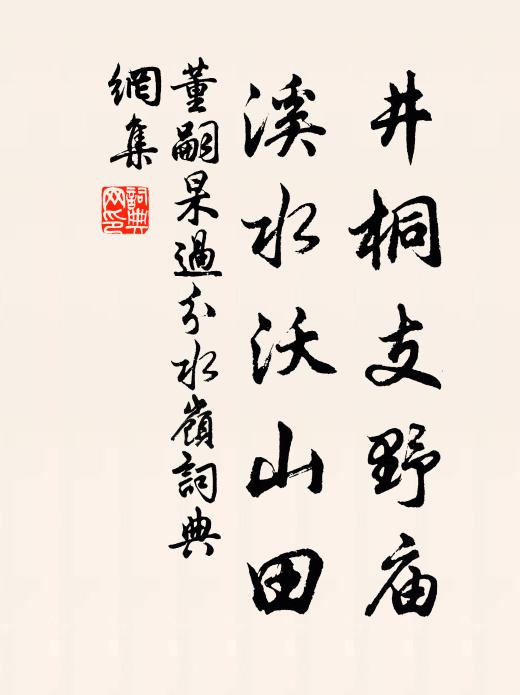 井桐支野庙
溪水沃山田
董嗣杲過分水嶺詞典
網集
詞典網印